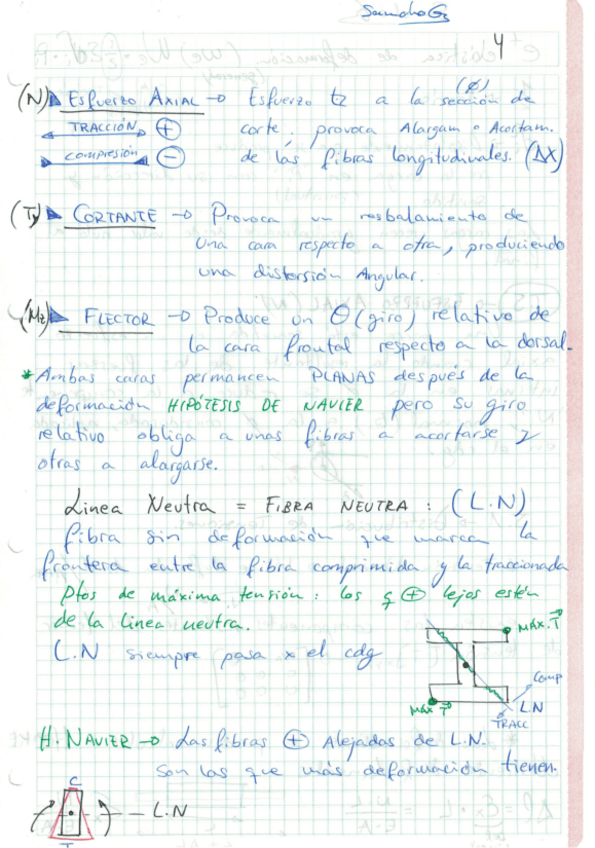 SamchoGz
4
(N) ESFUERZO AXIAL → Esfuerzo tz a la sección de (Ø)
TRACCIÓN + corte, provoca Alargam o Acortam.
COMPRESIÓN − de las fibras longitudinales. (ΔX)
(Ty) CORTANTE → Provoca un resbalamiento de
una cara respecto a otra, produciendo
una distorsión Angular.
(Mz) FLECTOR → Produce un θ (giro) relativo de
la cara frontal respecto a la dorsal.
* Ambas caras permancen PLANAS después de la
deformación HIPÓTESIS DE NAVIER pero su giro
relativo obliga a unas fibras a acortarse y
otras a alargarse.
Linea Neutra = FIBRA NEUTRA : (L.N)
fibra sin deformación que marca la
frontera entre la fibra comprimida y la traccionada
Ptos de máxima tensión : los q + lejos estén
de la linea neutra.
MÁX. T
L.N siempre pasa x el cdg
Comp
L.N
MÁX T
TRACC
H. NAVIER → Las fibras + Alejadas de L.N.
son las que más deformación tienen.
C
L.N
T